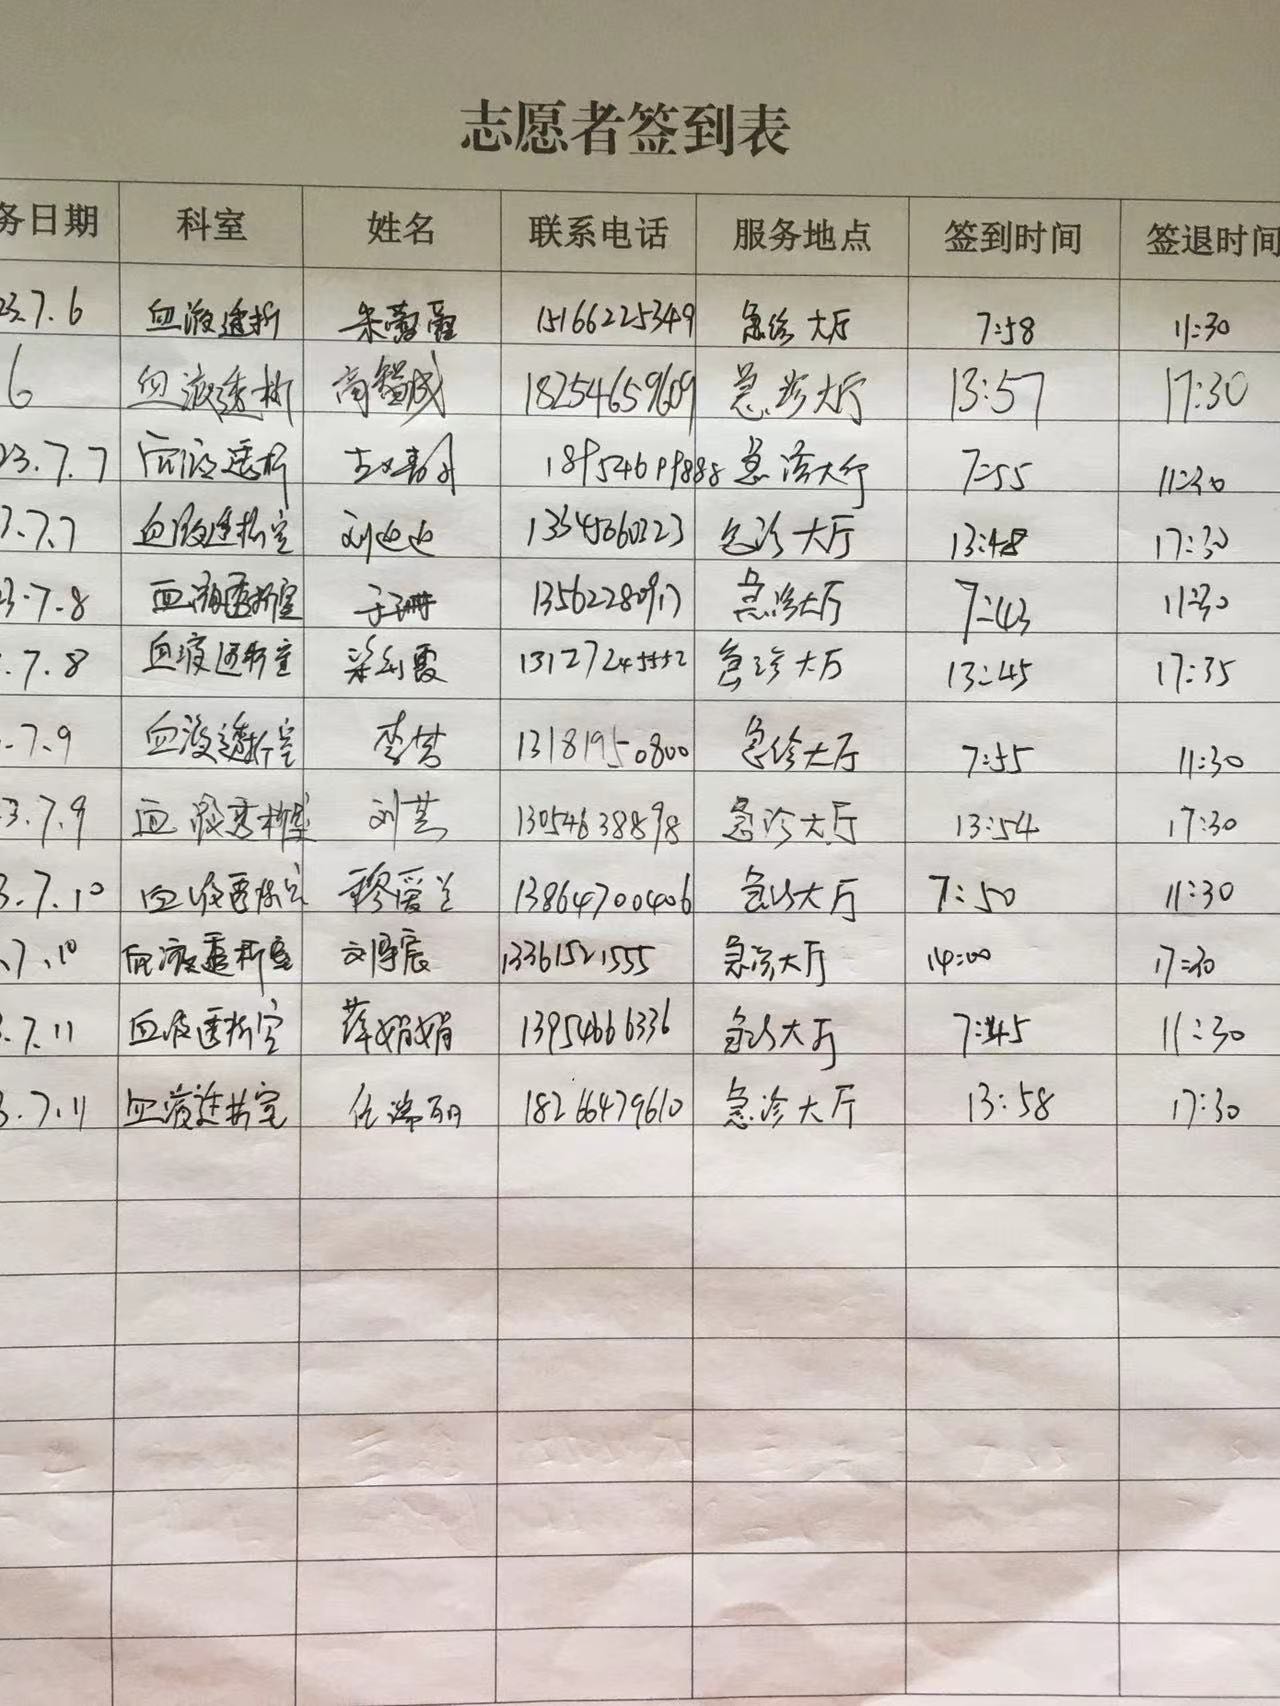 志愿者签到表
务日期 科室 姓名 联系电话 服务地点 签到时间 签退时间
23.7.6 血液透析 15166225349 急诊大厅 7:58 11:30
6 血液透析 高锱成 18254659609 急诊大厅 13:57 17:30
23.7.7 血液透析 18954699888 急诊大厅 7:55 11:30
3.7.7 血液透析室 刘迎迎 急诊大厅 13:48 17:30
23.7.8 血液透析室 于珊 13562280917 急诊大厅 7:43 11:30
.7.8 血液透析室 梁利霞 13127245552 急诊大厅 13:45 17:35
.7.9 血液透析室 李营 13181950800 急诊大厅 7:55 11:30
3.7.9 血液透析室 刘芸 13054638898 急诊大厅 13:54 17:30
3.7.10 血液透析室 穆爱兰 13864700406 急诊大厅 7:50 11:30
.7.10 血液透析室 刘厚宸 13361521555 急诊大厅 14:00 17:30
.7.11 血液透析室 薛娟娟 13954666336 急诊大厅 7:45 11:30
3.7.11 血液透析室 任瑞丽 18266479610 急诊大厅 13:58 17:30